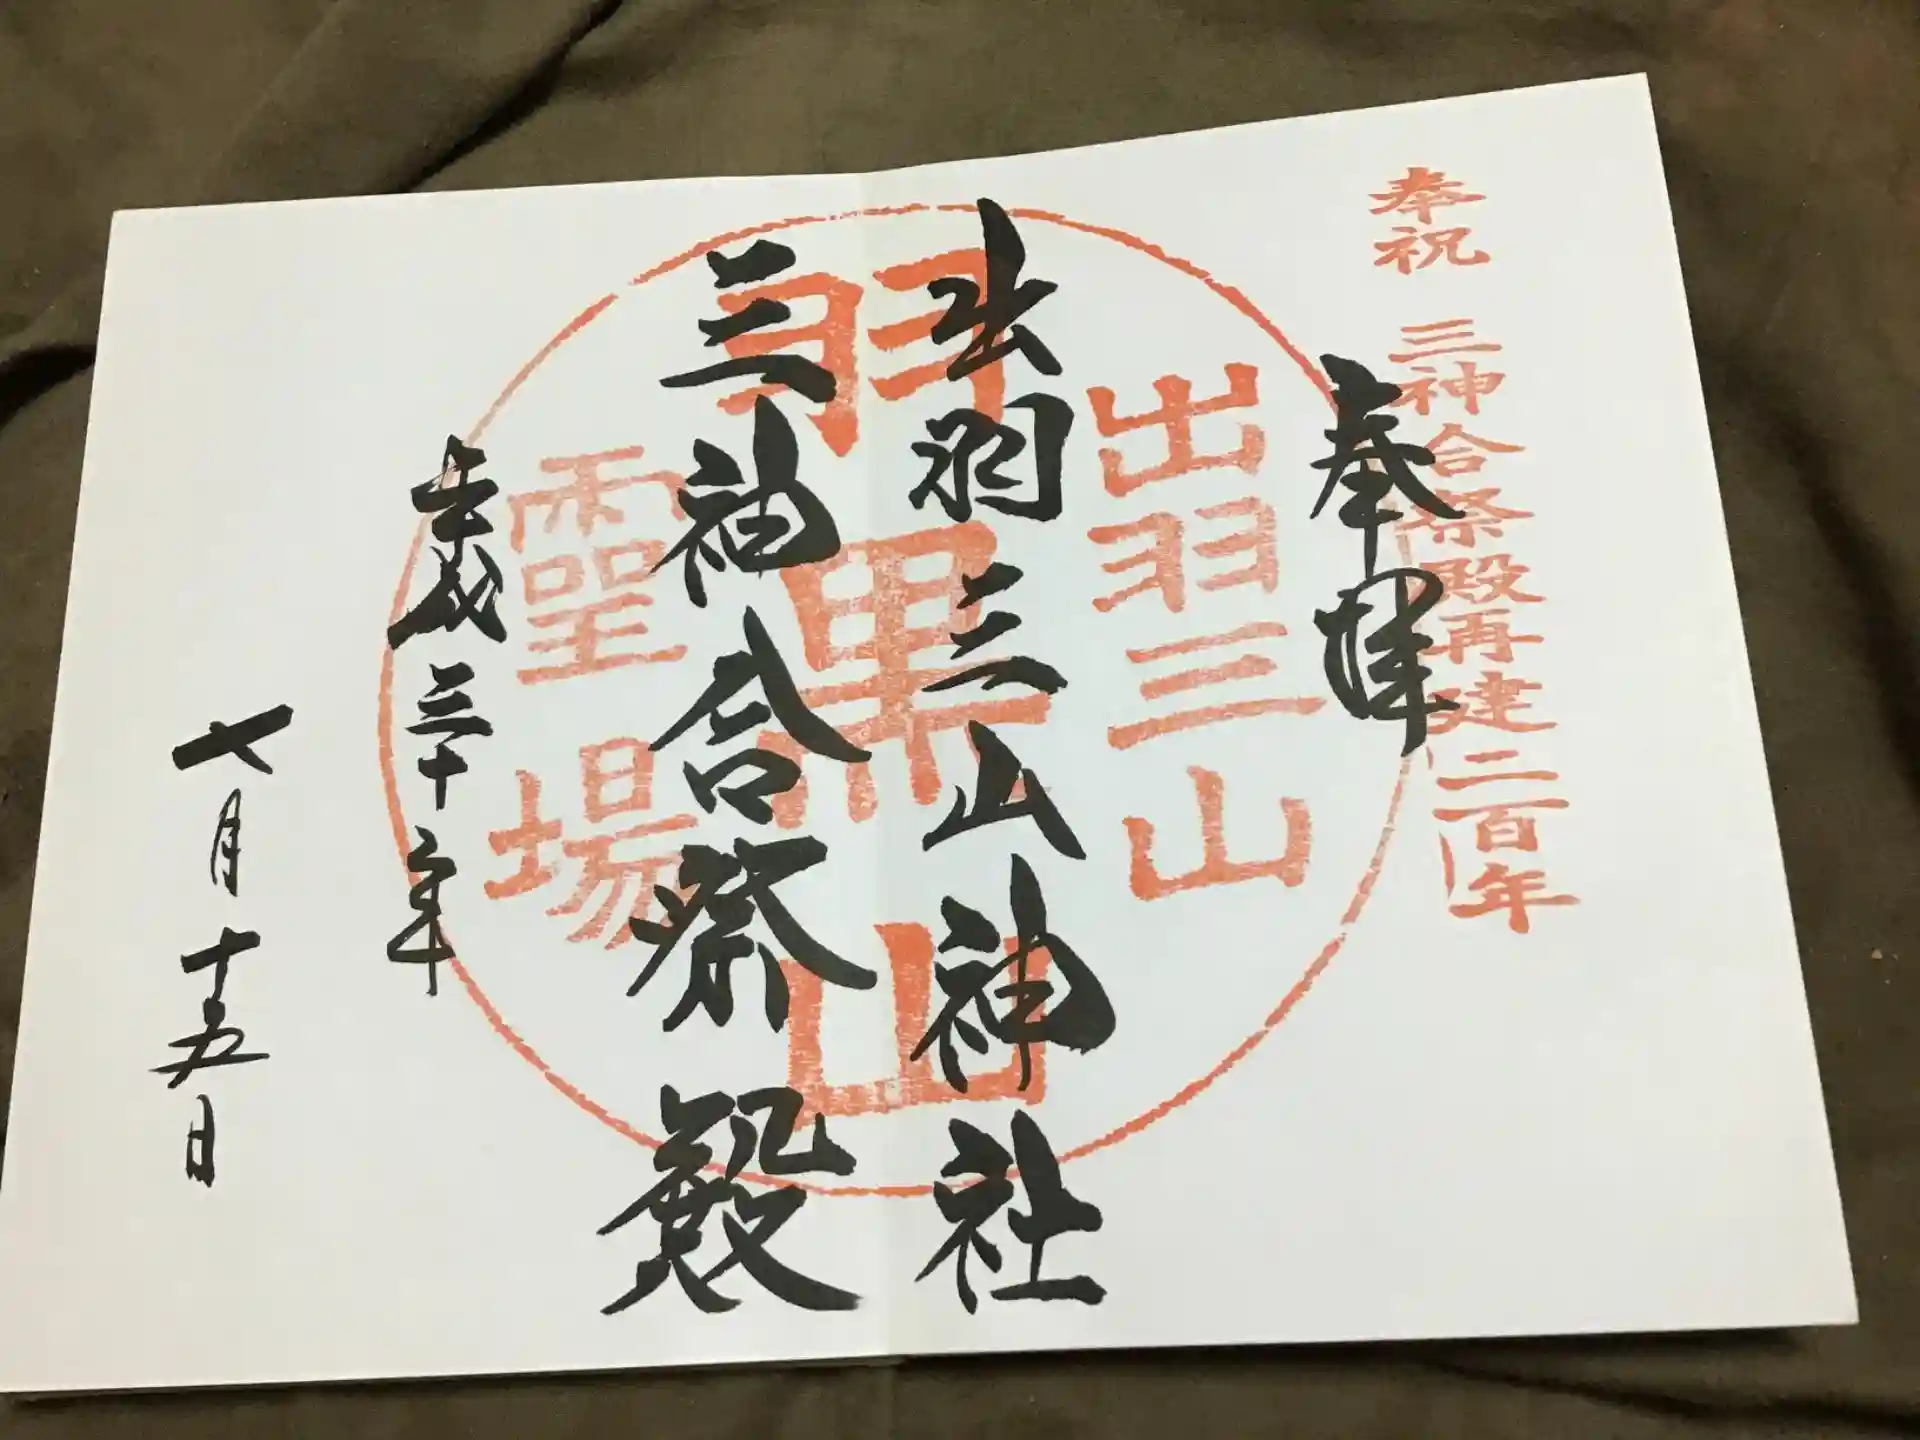 奉祝 三神合祭殿再建二百年
奉拝
出羽三山
出羽三山神社
羽黒山
三神合祭殿
靈場
平成三十年
七月十五日